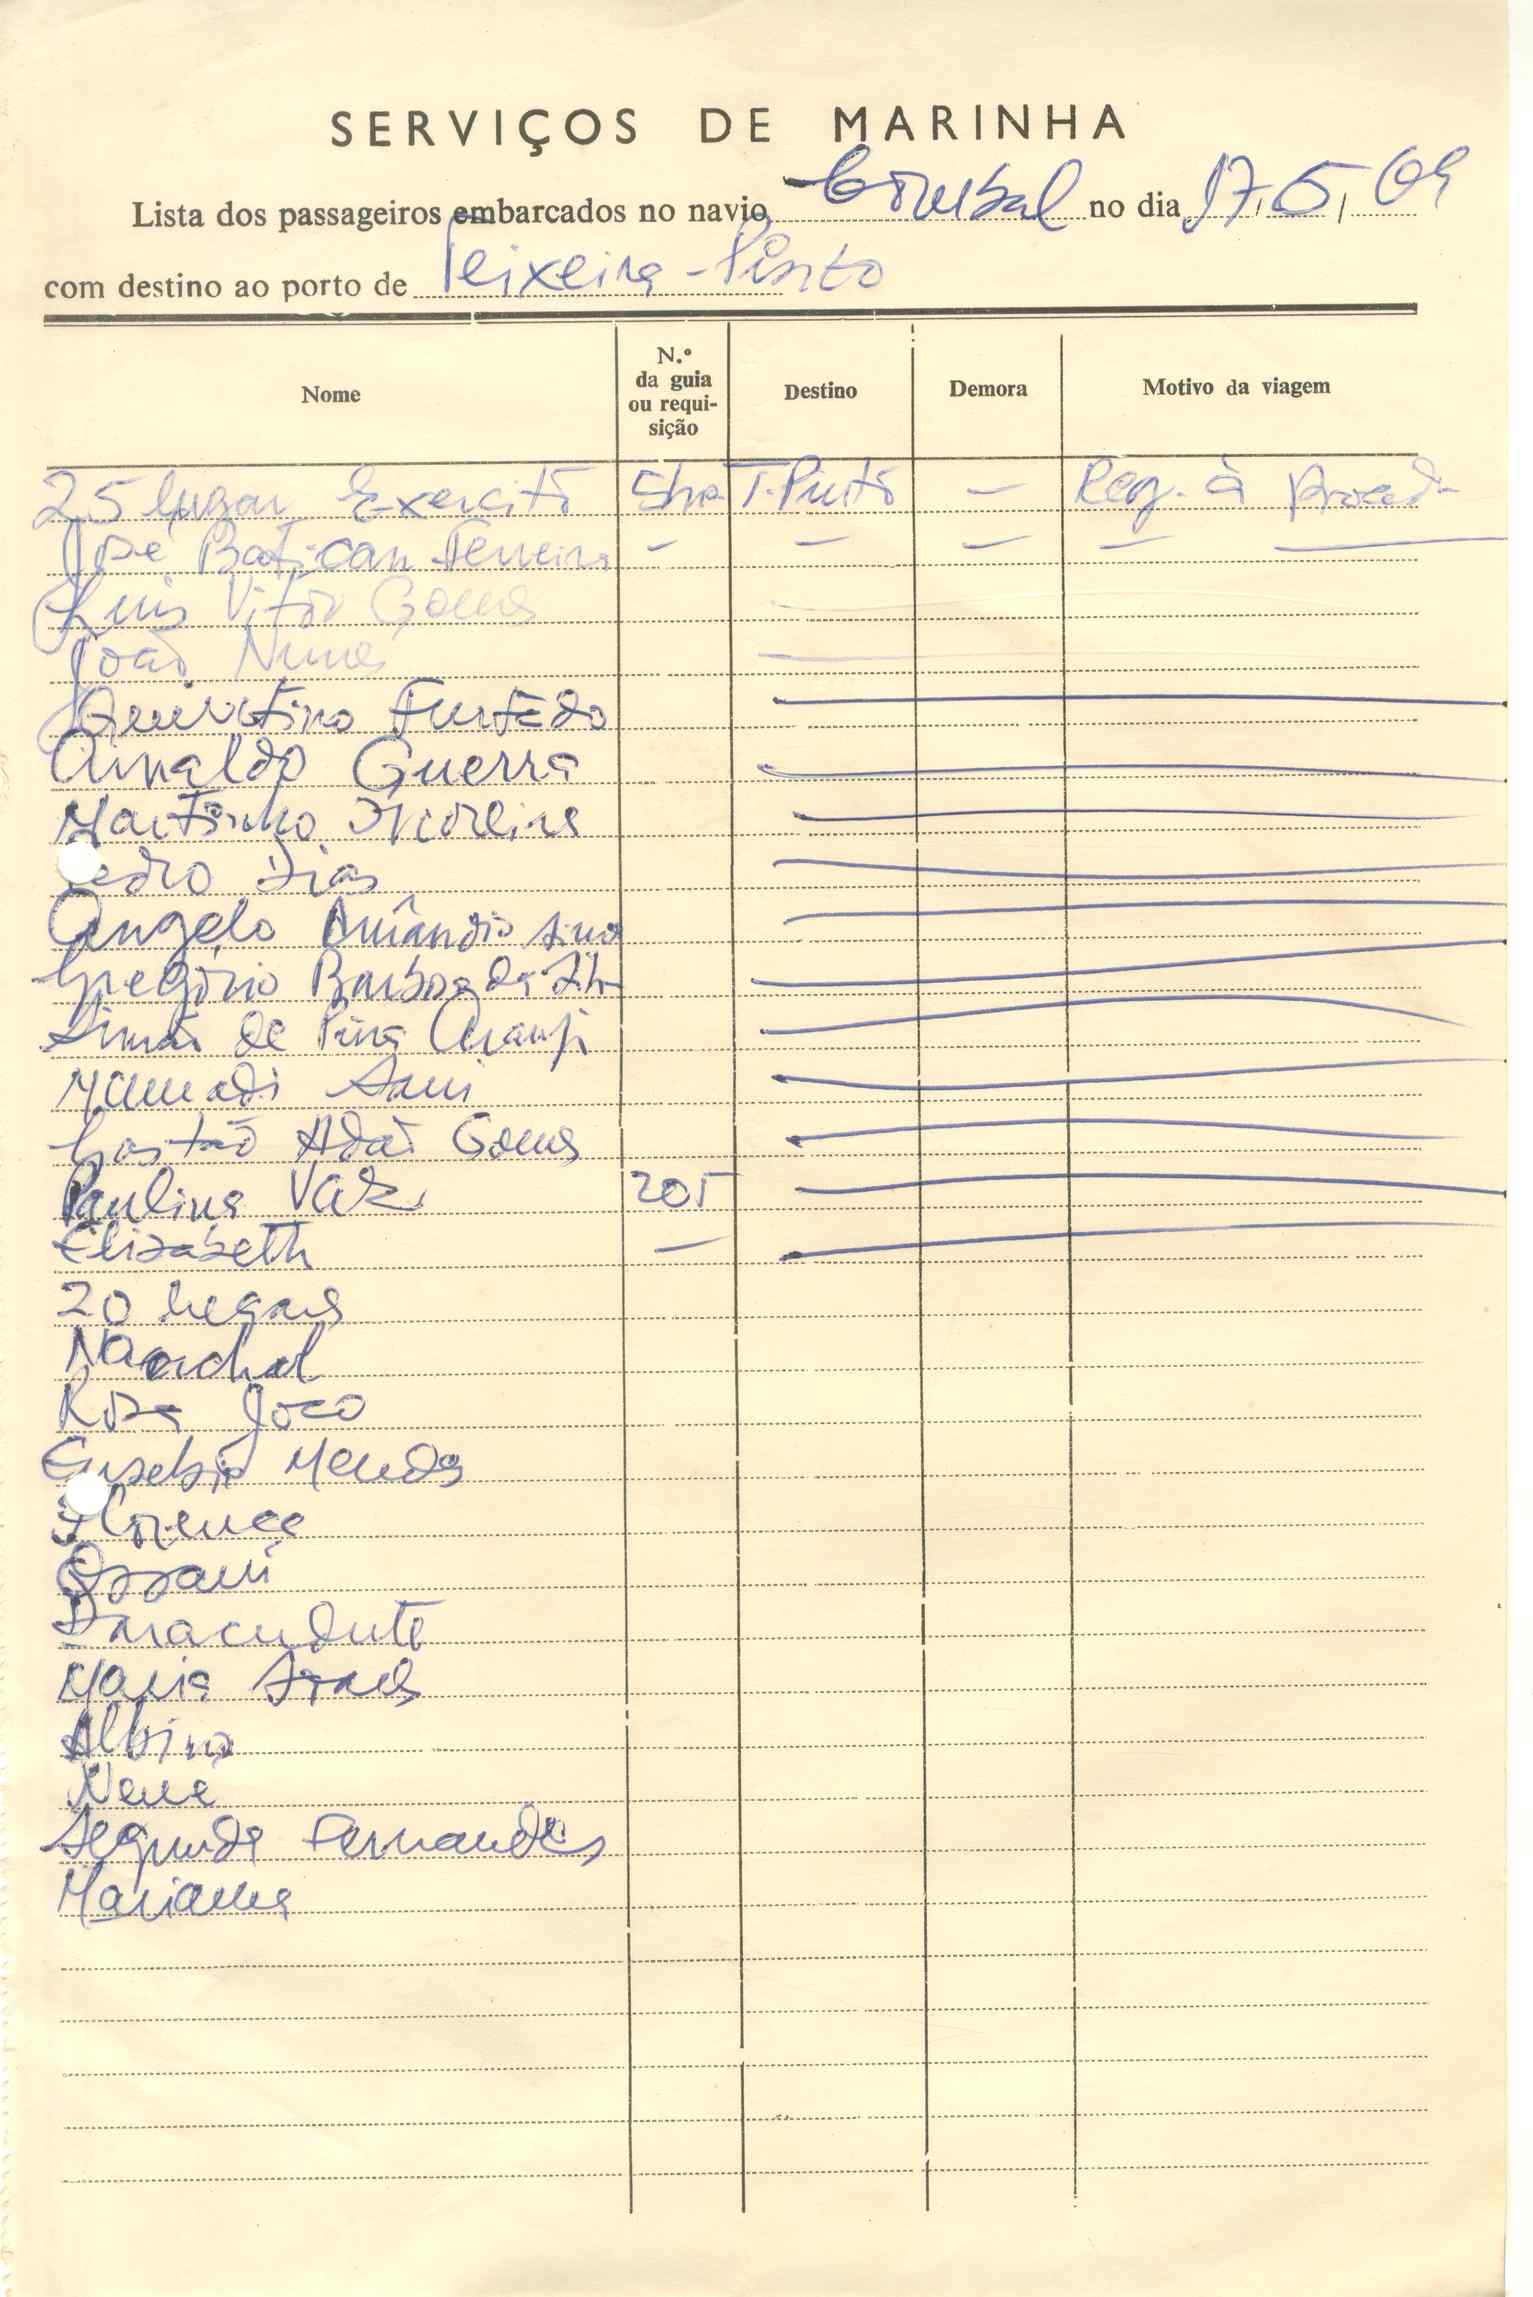 SERVIÇOS DE MARINHA
Lista dos passageiros embarcados no navio Corubal no dia 17, 5, 69
com destino ao porto de Teixeira-Pinto
Nome N.º da guia ou requi-sição Destino Demora Motivo da viagem
25 lugar Exercito T. Pinto — Reg. à
José Batican Ferreira — — — — —
Luis Vitor Gomes
João Nunes
Quintino Furtado
Arnaldo Guerra
Martinho Moreira
Pedro Dias
Angelo Amândio
Gregório Barbosa da
Simão de Pina Araujo
Mamadi Sani
Gastão Adão Gomes
Paulina Vaz 205
Elizabeth —
20 lugares
Rosa João
Eusebio Mendes
Florença
Ossani
Maria Soares
Albino
Nené
Segunda Fernandes
Mariama